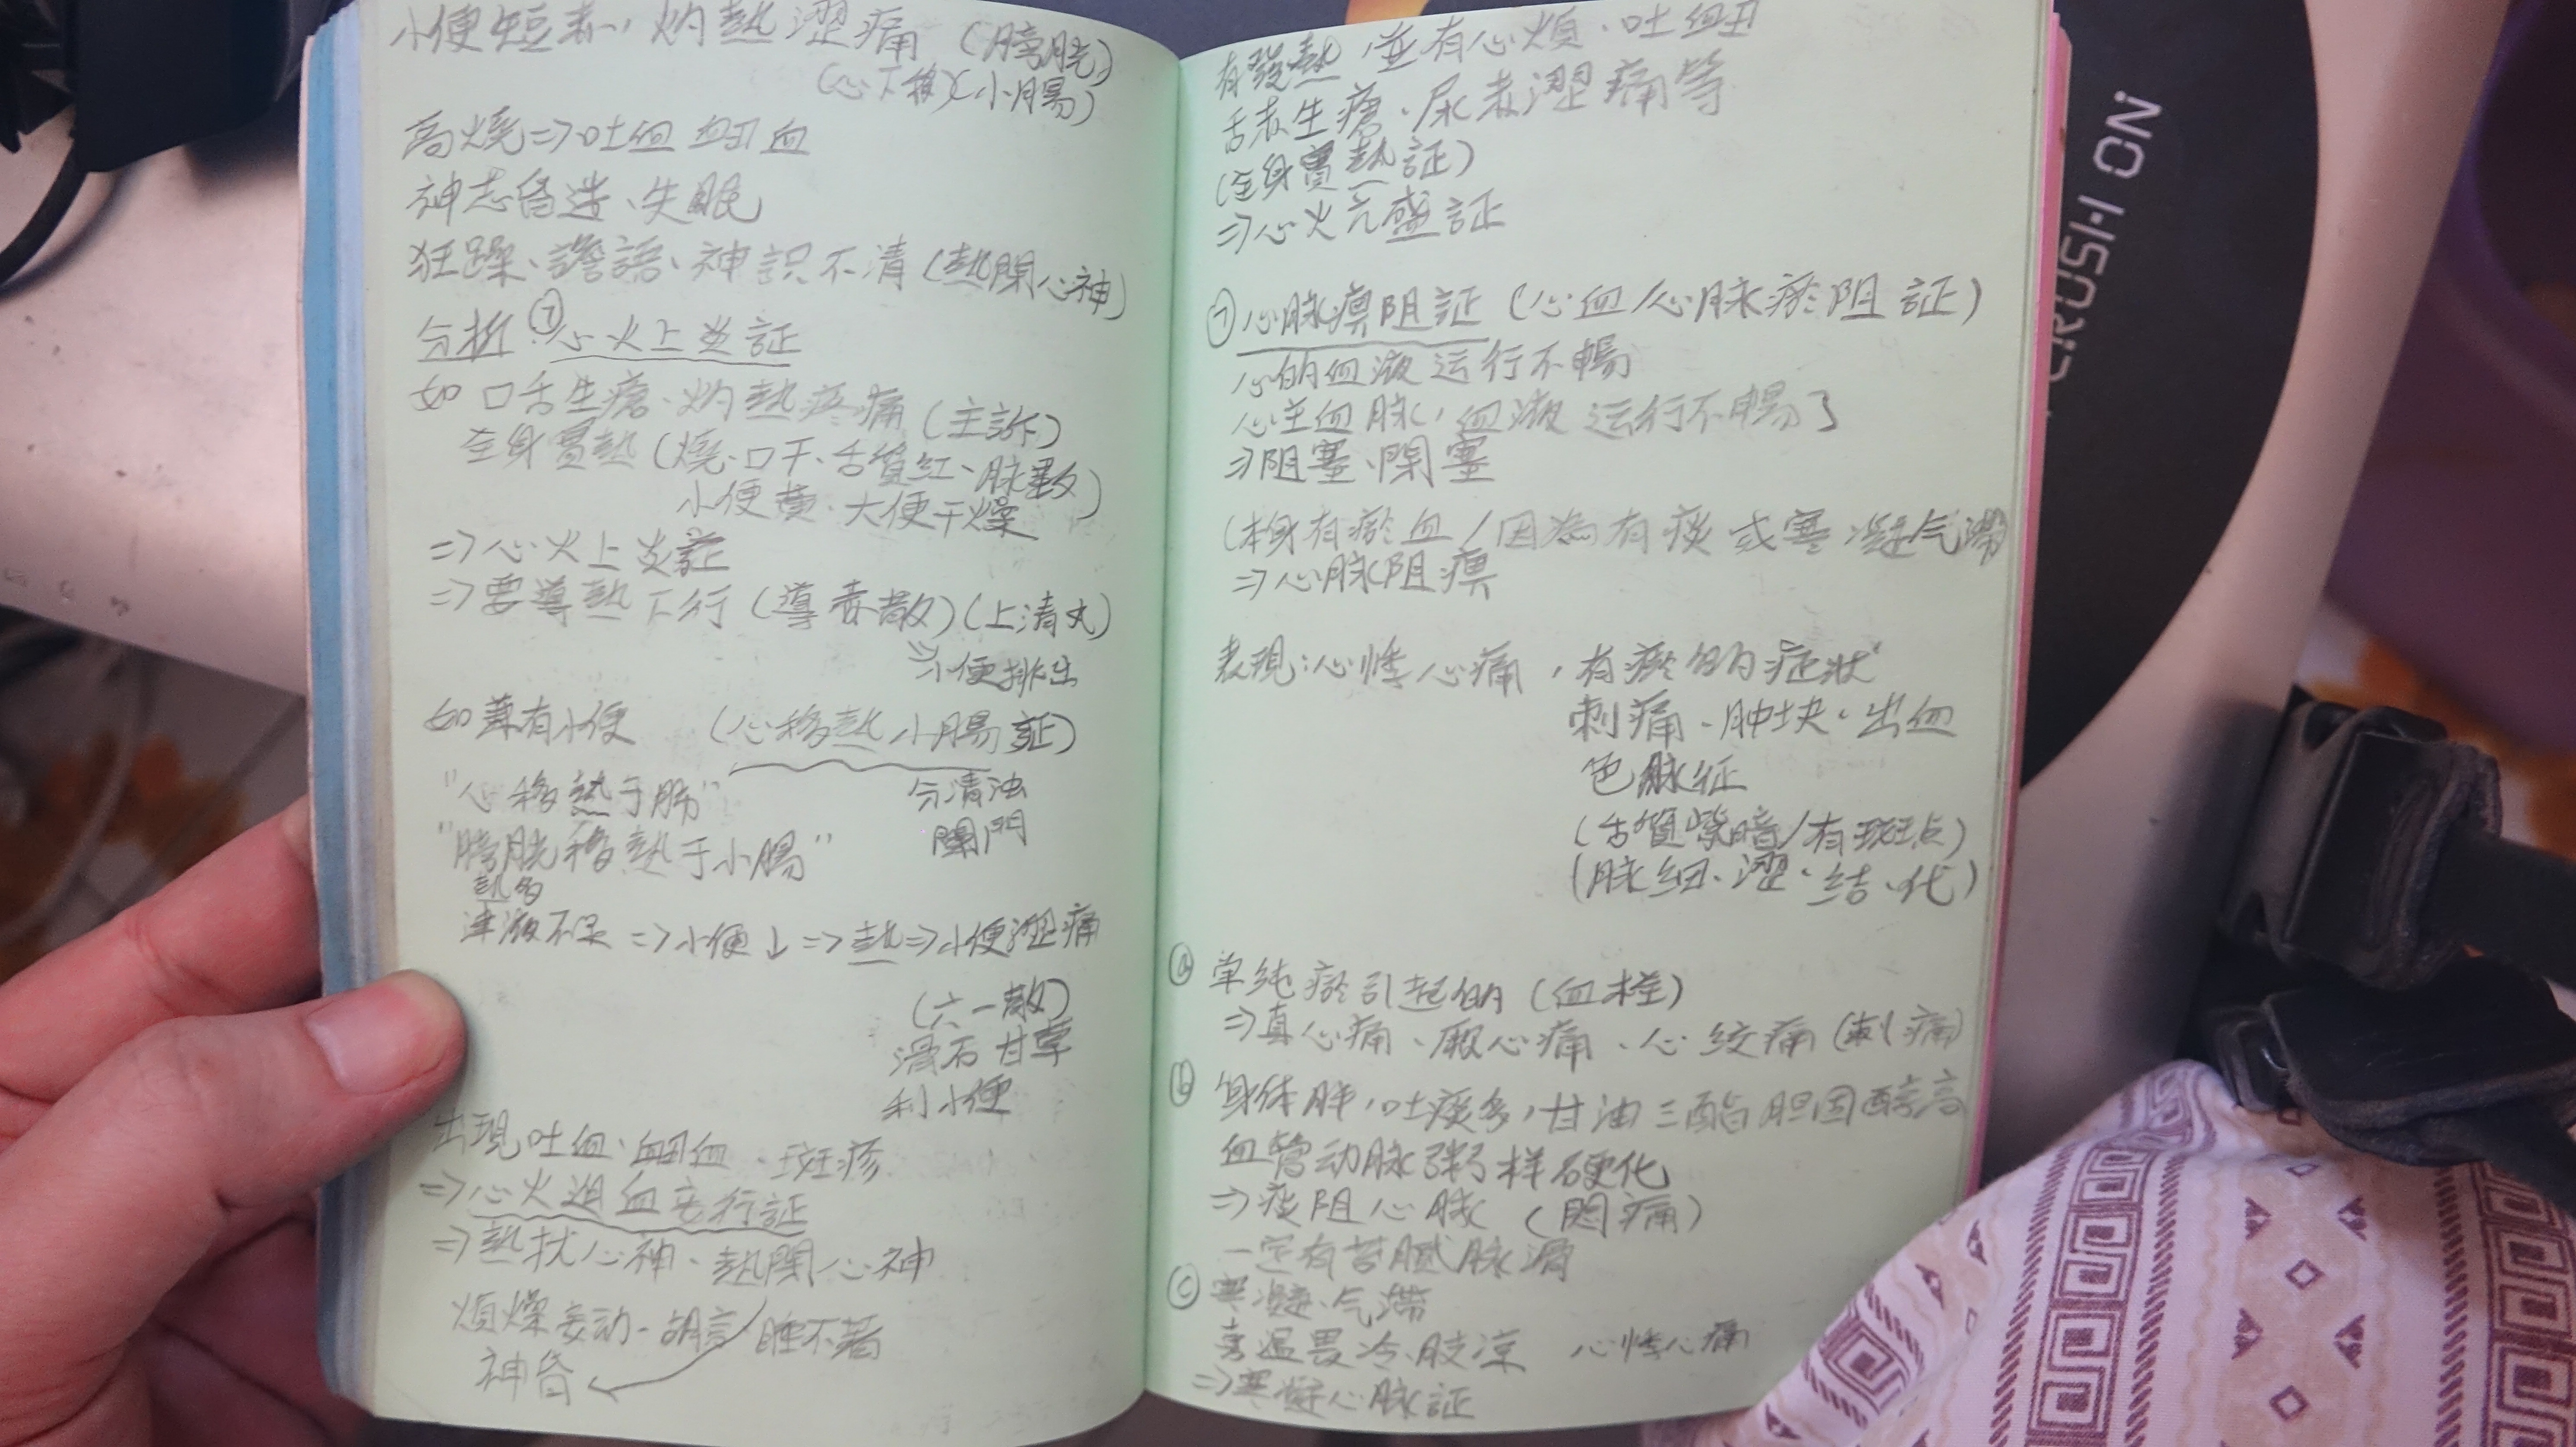 小便短赤、灼熱澀痛 (膀胱)
(心下移)(小腸)
高燒⇒吐血 衄血
神志昏迷、失眠
狂躁、譫語、神識不清 (熱閉心神)
分析 ⑦ 心火上炎証
如 口舌生瘡、灼熱疼痛 (主訴)
全身實熱 (燒、口干、舌質紅、脉數
小便黃、大便干燥)
⇒心火上炎証
⇒要導熱下行 (導赤散) (上清丸)
⇒小便排出
如兼有小便 (心移熱小腸証)
"心移熱于肺" 分清浊
"膀胱移熱于小腸" 闌門
熱多
津液不足 ⇒小便↓⇒熱⇒小便澀痛
(六一散)
滑石 甘草
利小便
出現吐血、衄血、斑疹
⇒心火迫血妄行証
⇒熱扰心神、熱閉心神
煩燥妄动、胡言 睡不著
神昏
有發熱,並有心煩、吐衄
舌赤生瘡、尿赤澀痛等
(全身實熱証)
⇒心火亢盛証
⑦ 心脉痹阻証 (心血/心脉瘀阻証)
心的血液运行不暢
心主血脉,血液运行不暢了
⇒阻塞、閉塞
(本身有瘀血/因為有痰或寒凝气滯
⇒心脉阻痹
表現:心悸心痛,有瘀的症狀
刺痛、肿块、出血
色脉征
(舌質紫暗/有斑点)
(脉細、澀、結、代)
ⓐ 单纯瘀引起的 (血栓)
⇒真心痛、厥心痛、心绞痛 (刺痛)
ⓑ 身体胖,吐痰多,甘油三酯胆固醇高
血管动脉粥样硬化
⇒痰阻心脉 (悶痛)
一定有苔膩脉滑
ⓒ 寒凝、气滯
喜温畏冷、肢凉 心悸心痛
⇒寒凝心脉証
CRUSH ON